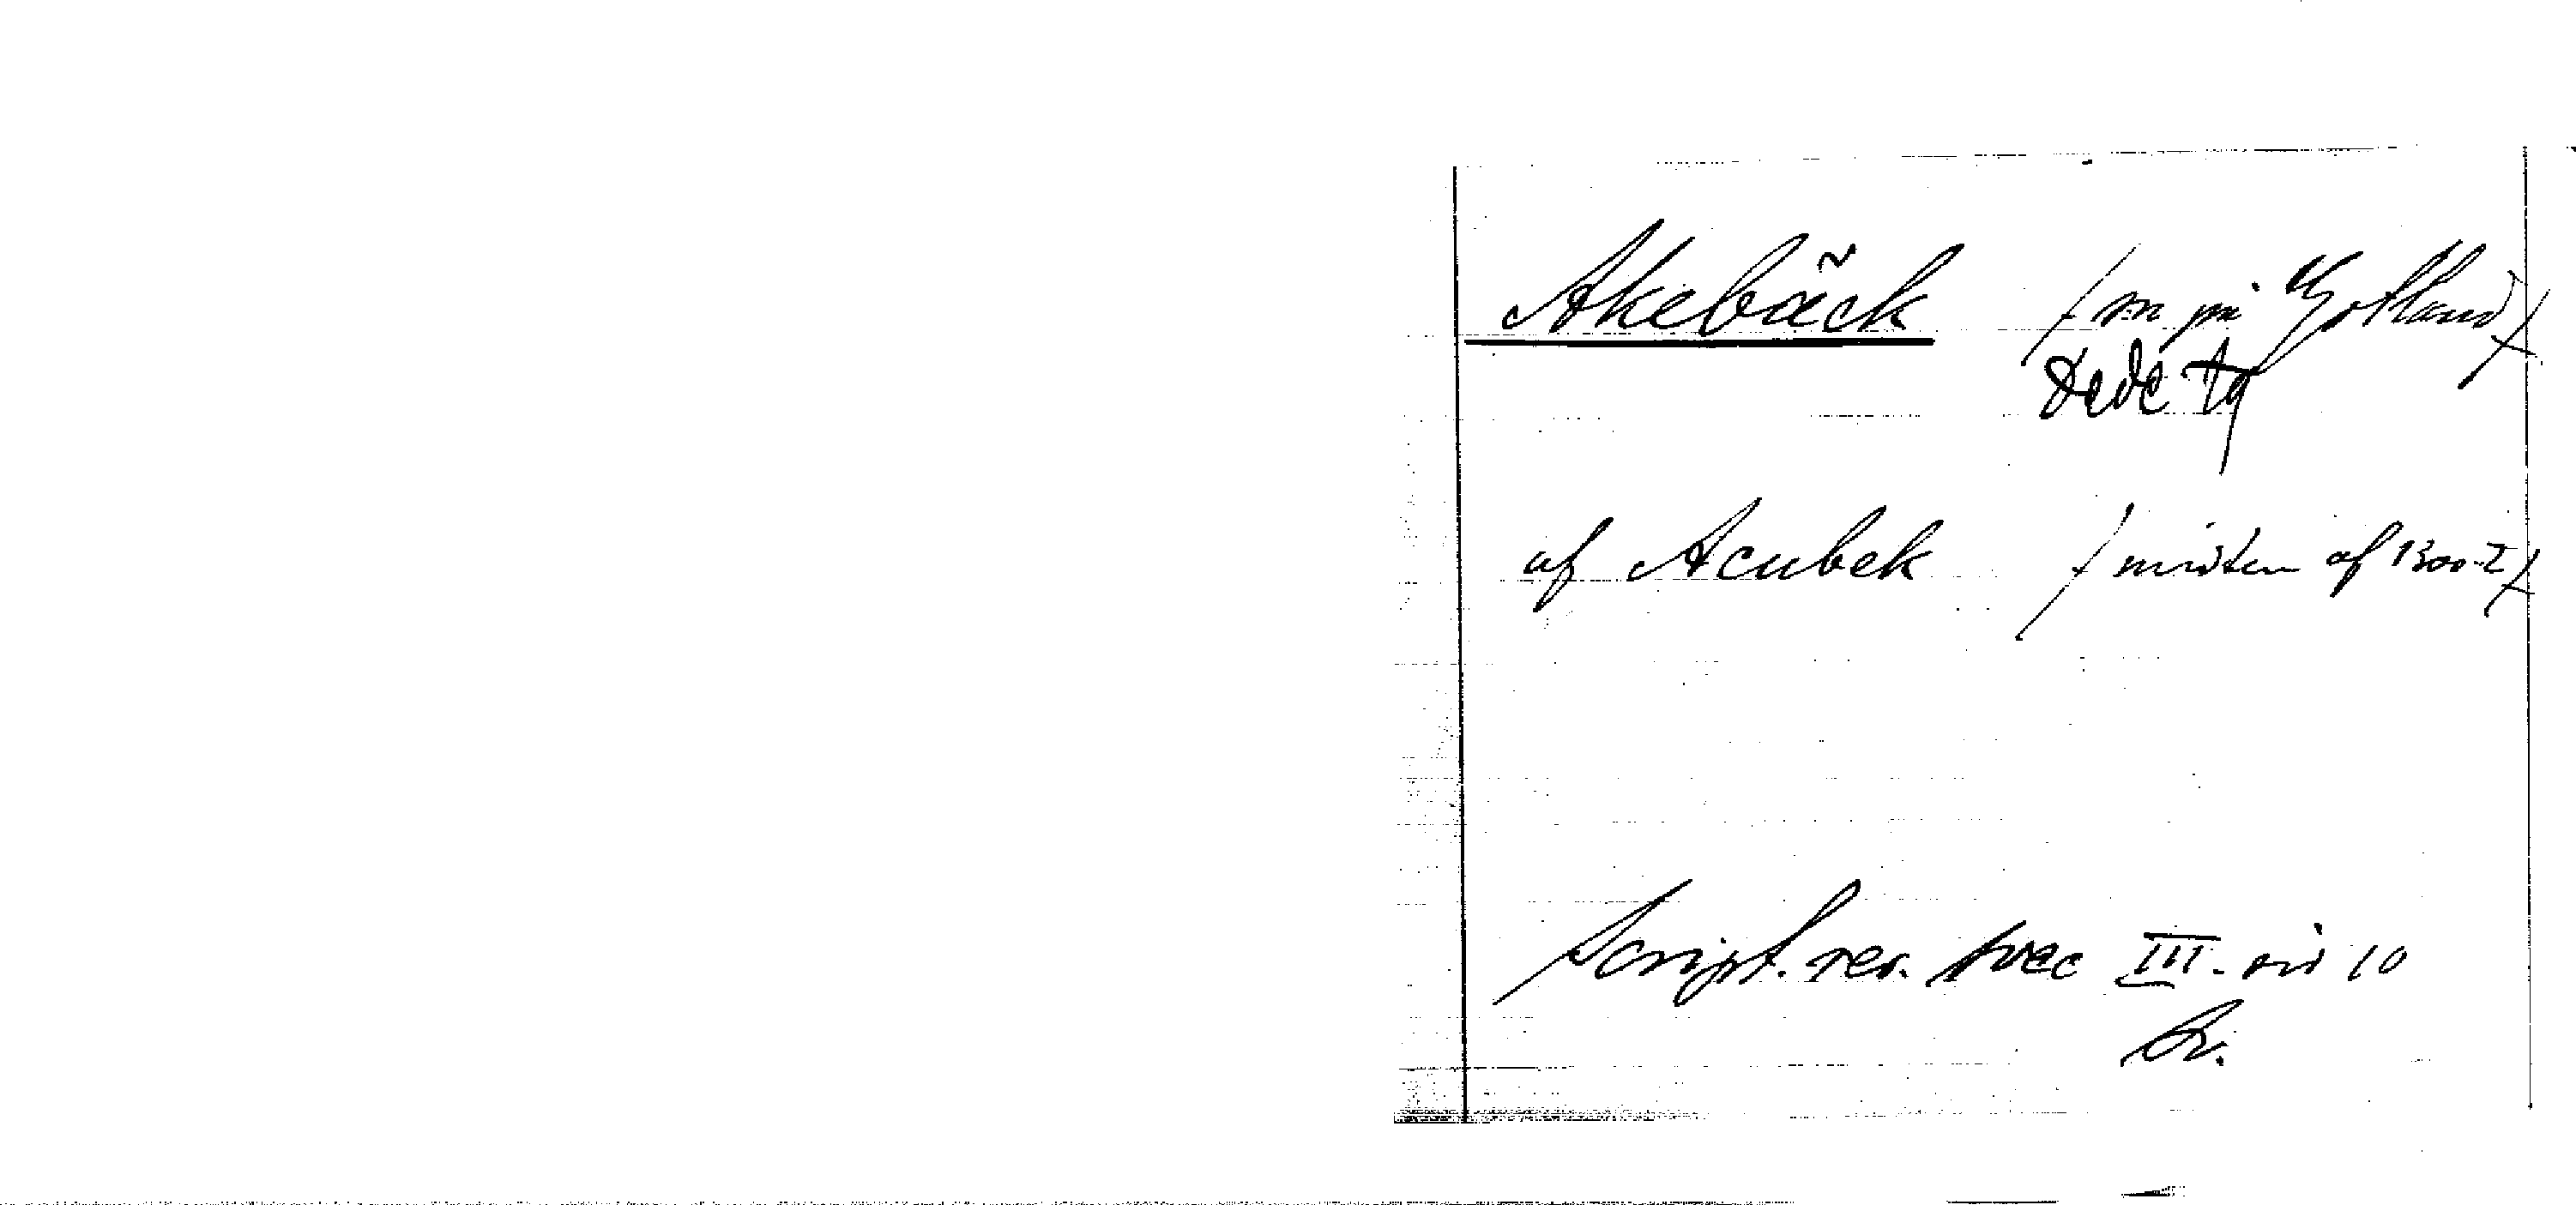 Akebäck /sn på Gotland/
Dede tg
af Acubek /midten af 1300-t/
Script. rer. svec III. sid 10
Br.